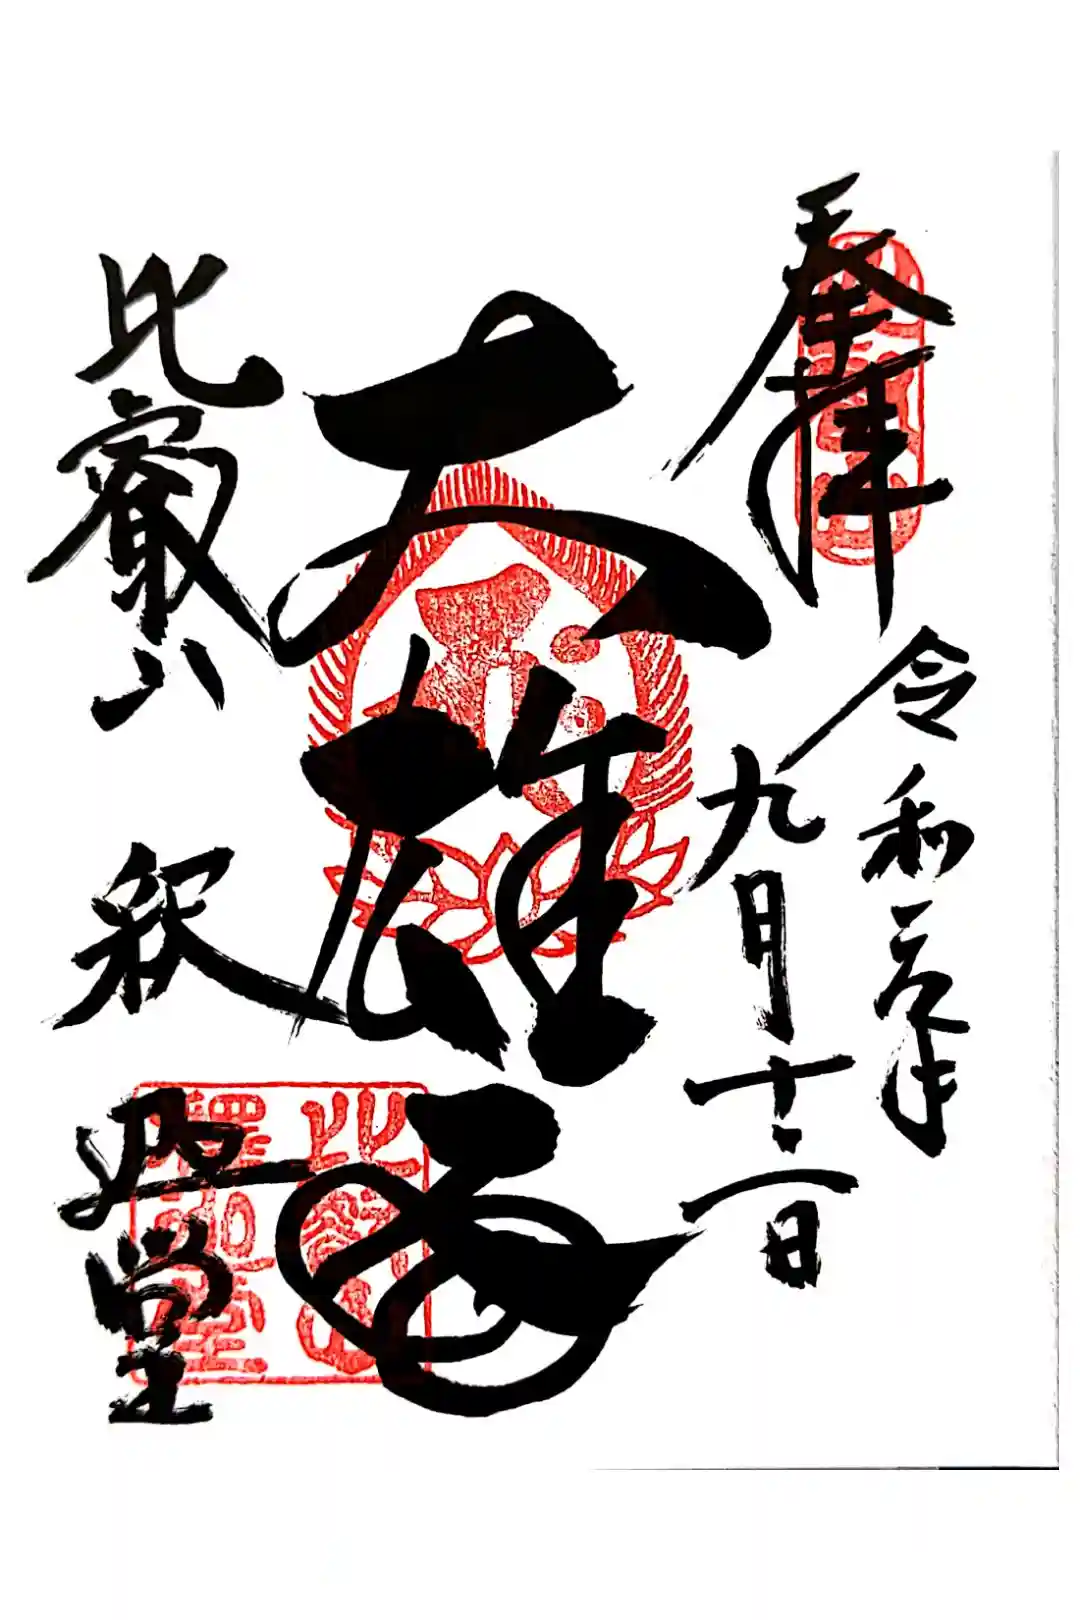 奉拝
令和元年
九月十二日
大雄
比叡山 釈迦堂
比叡山
釋迦堂